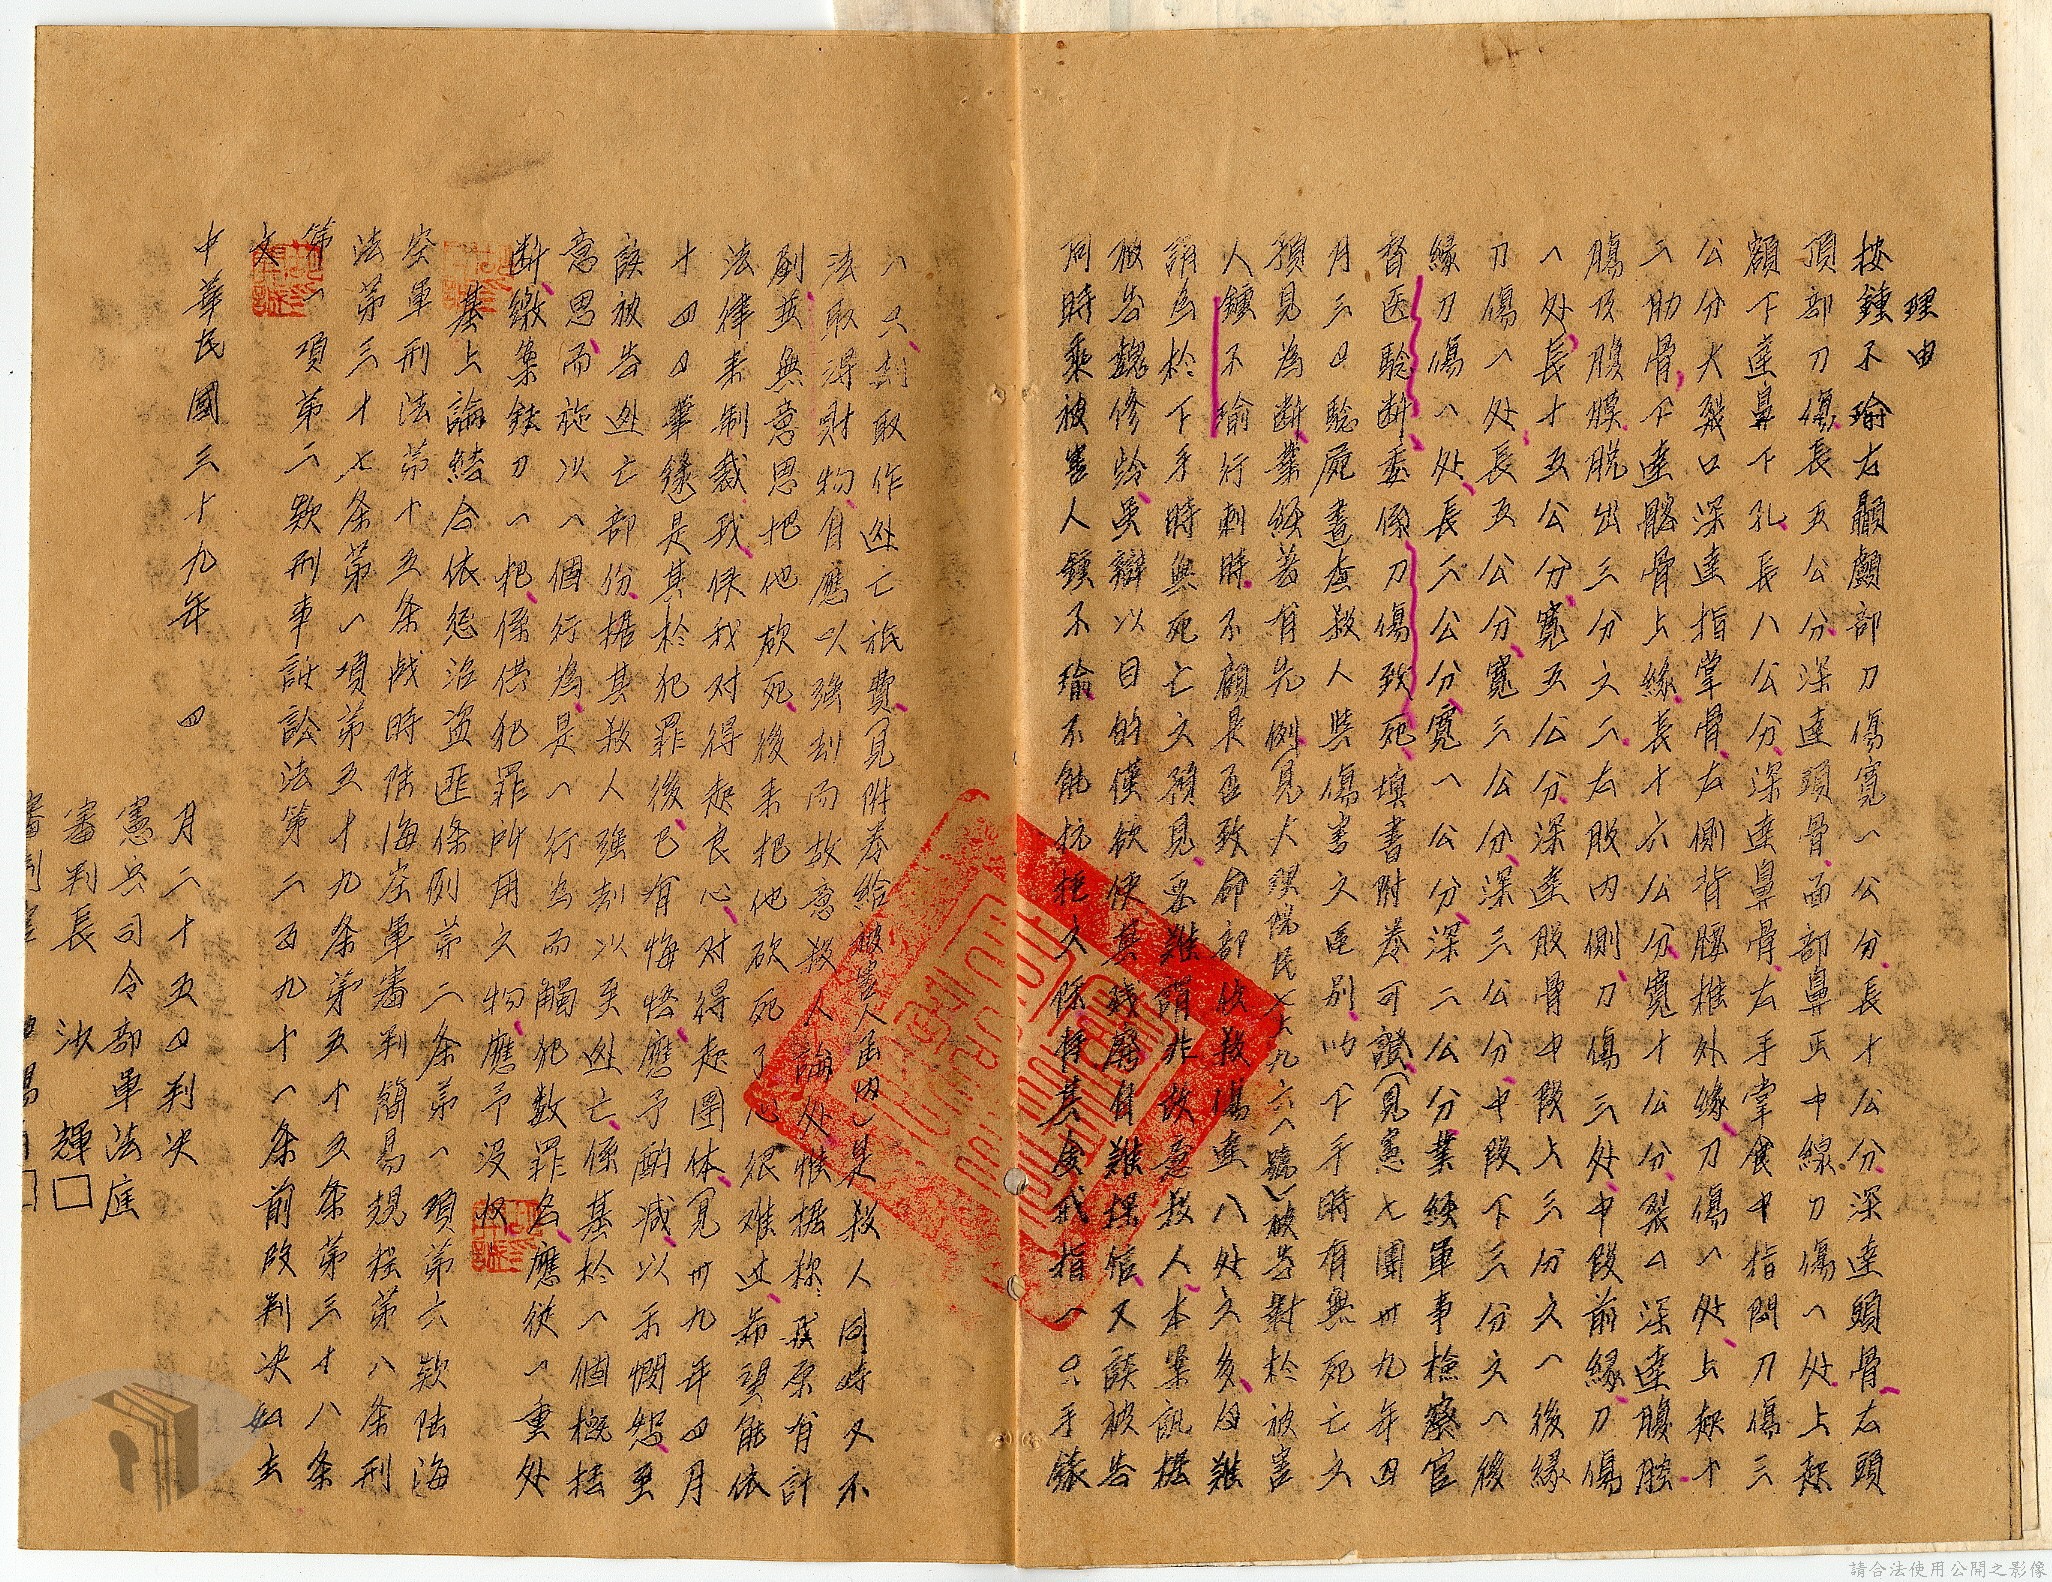 理由
按鍾不瑜右顳顱部刀傷寬一公分長十公分深達頭骨右頭
頂部刀傷長五公分深達頭骨面部鼻正中線刀傷一处上起
額下達鼻下孔長八公分深達鼻骨左手掌食中指間刀傷三
公分大裂口深達指掌骨左側背腰椎外緣刀傷一处上起十
二肋骨下達髂骨上緣長十六公分寬十公分裂口深達腹腔
腸及腹膜脫出三分之二右股內側刀傷三处中段前緣刀傷
一处長十五公分寬五公分深達股骨中段上三分之一後緣
刀傷一处長五公分寬三公分深三公分中段下三分之一後
緣刀傷一处長三公分寬一公分深二公分業經軍事檢察官
督医驗断委係刀傷致死填書附卷可證(見憲七團卅九年四
月三日驗屍書查殺人與傷害之區別以下手時有無死亡之
預見為断業經著有先例見大理院民七上九六一號)被告對於被害
人鍾不瑜行刺時不顧是否致命部位殺傷達八处之多自難
謂為於下手時無死亡之預見要難謂非故意殺人本案訊据
被告魏修齡虽辯以目的僅欲使其殘廢自難採信又該被告
同時乘被害人鍾不瑜不能抗拒之際將其金戒指一只手錶
一只刼取作逃亡旅費(見附卷給被害人函內)是殺人同時又不
法取得財物自應以強刼而故意殺人論处惟据称我原有計
劃並無意思把他砍死後來把他砍死了心很难过希望能依
法律來制裁我俟我对得起良心对得起團体(見卅九年四月
十四日筆錄是其於犯罪後已有悔悟應予酌减以示憫恕至
該被告逃亡部份据其殺人強刼以至逃亡係基於一個概括
意思而施以一個行為是一行為而觸犯数罪名應從一重处
断繳案銼刀一把係供犯罪所用之物應予没收
基上論結合依懲治盗匪條例第二条第一項第六欵陆海
空軍刑法第十五条戡時陆海空軍審判簡易規程第八条刑
法第三十七条第一項第五十九条第五十五条第三十八条
第一項第二欵刑事訴訟法第二百九十一条前段判决如主
文
中華民國三十九年四月二十五日判决
憲兵司令部軍法庭
審判長 沙輝□